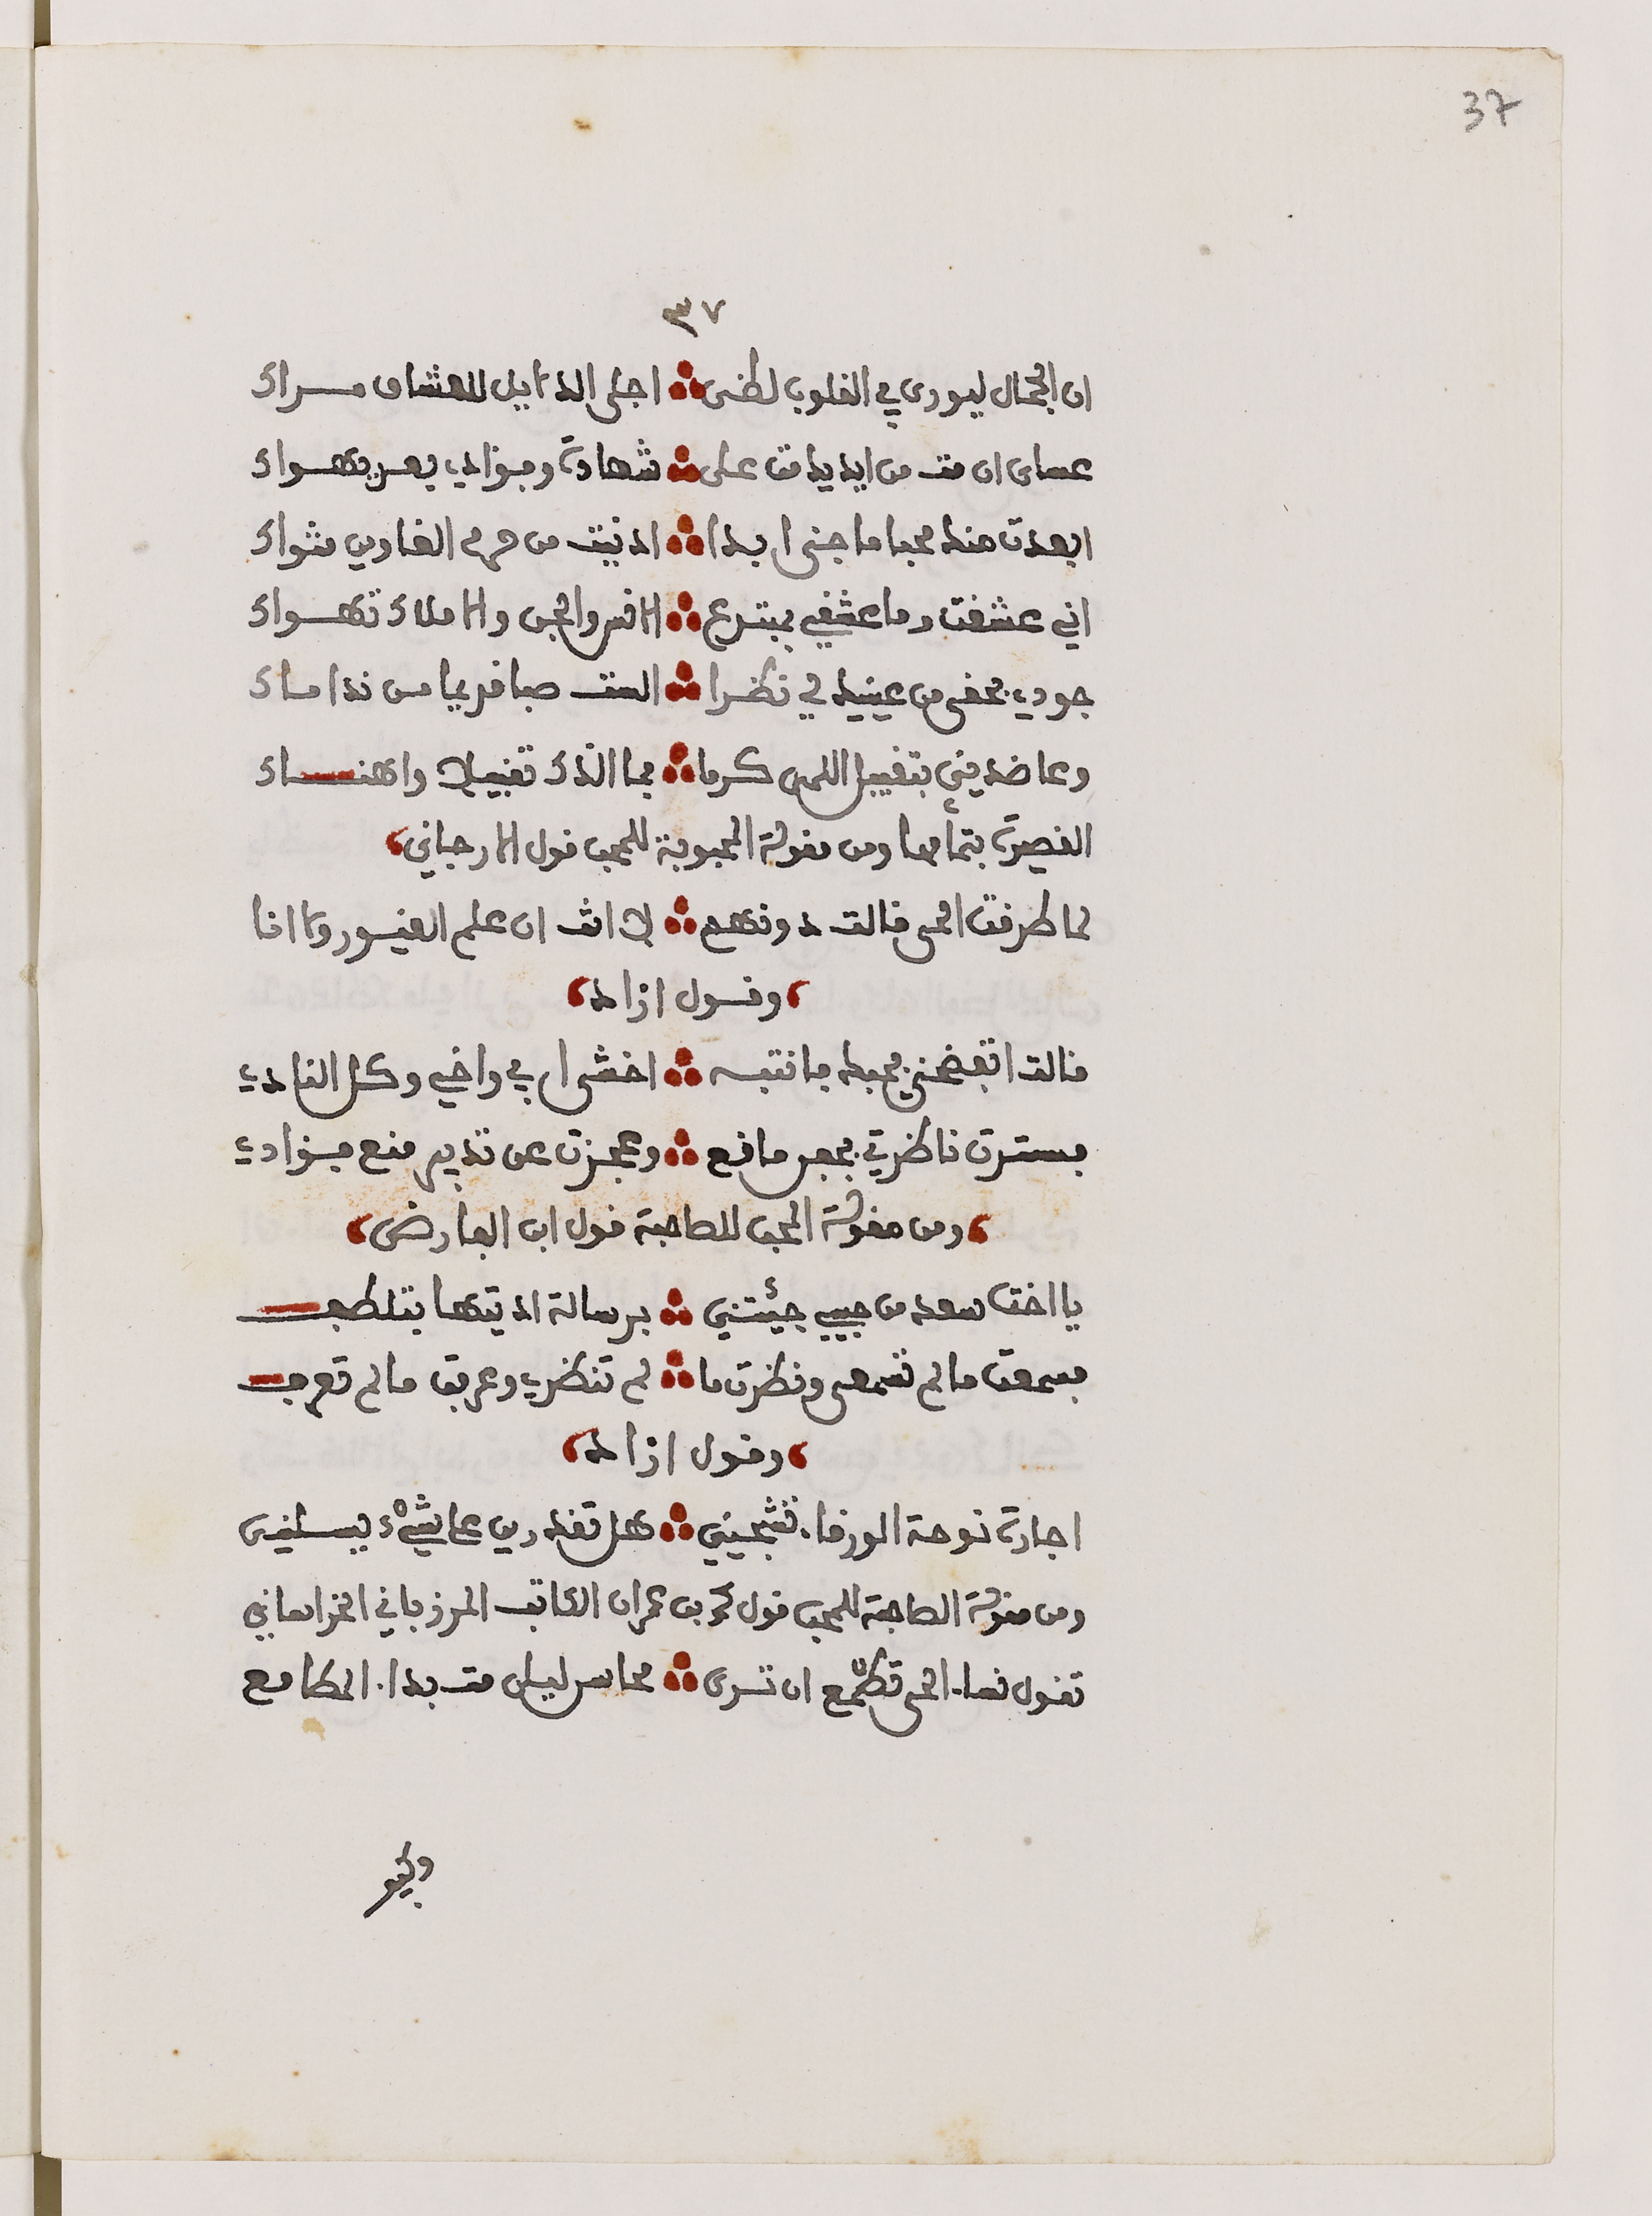 37
٣٧
ان الجمال ليورى في القلوب لظى ∴ اجلى الدلايل للعشاق مراك
عساى ان مت من ايديك مت على ∴ شهادة وفؤادي بعد يهواك
ابعدت عنك محبا ما جنى ابدا ∴ ادنيت من حرم الغادين مثواك
اني عشقت وما عشقي بمبتدع ∴ الانس والجن والاملاك تهواك
جودي بخفى من عينيك لي نظرا ∴ الست صبا قديما من نداماك
وعاضديني بتقبيل اللمى كرما ∴ فما الذك تقبيلا واهناك
القصيدة بتمامها ومن مقولة المحبوبة للمحب قول الارجاني
لما طرقت الحى قالت دونهم ∴ لا انت ان علم الغيور ولا انا
وقول ازاد
قالت اتفضحني بحبك فانتبه ∴ اخشى ابي واخي وكل النادي
فسترت ناظرتي بجفن مانع ∴ وعجزت عن تدبير منع فؤادي
ومن مقولة المحب للصاحبة قول ابن الفارض
يا اخت سعد من حبيبي جئتني ∴ برسالة اديتها بتلطف
فسمعت ما لم تسمعى ونظرت ما ∴ لم تنظري وعرفت ما لم تعرف
وقول ازاد
اجارة نوحة الورقاء تشجيني ∴ هل تقدرين على شيء يسليني
ومن مقولة الصاحبة للمحب قول محمد بن عمران الكاتب المرزباني الخراساني
تقول نساء الحى تطمع ان ترى ∴ محاسن ليلى مت بداء المطامع
وكيف